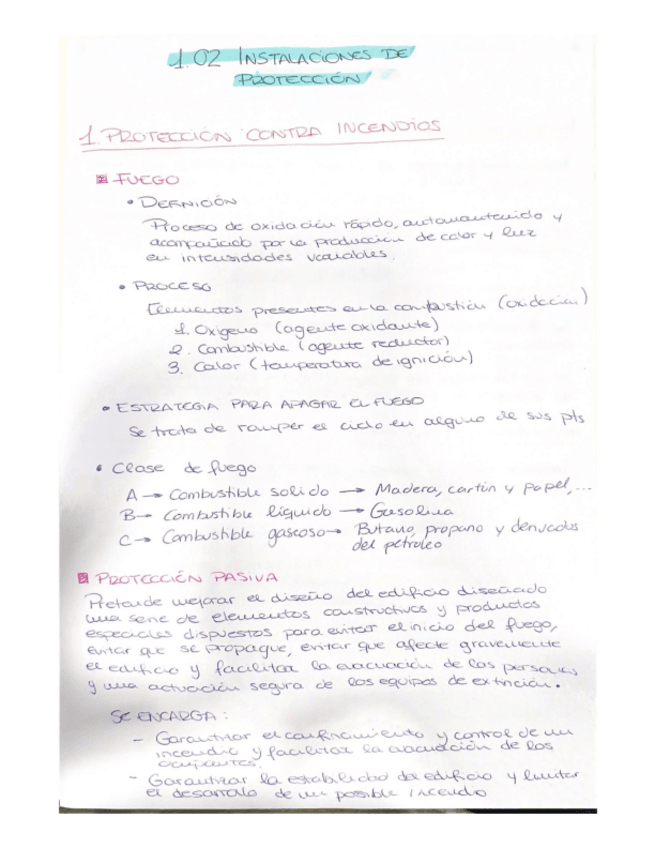 1.02 INSTALACIONES DE
PROTECCIÓN
1. PROTECCIÓN CONTRA INCENDIOS
FUEGO
• DEFINICIÓN
Proceso de oxidación rápido, automantenido y
acompañado por la producción de calor y luz
en intensidades variables.
• PROCESO
Elementos presentes en la combustión (oxidación)
1. Oxígeno (agente oxidante)
2. Combustible (agente reductor)
3. Calor (temperatura de ignición)
• ESTRATEGIA PARA APAGAR EL FUEGO
Se trata de romper el ciclo en alguno de sus pts
• Clase de fuego
A → Combustible solido → Madera, cartón y papel,...
B → Combustible líquido → Gasolina
C → Combustible gaseoso → Butano, propano y derivados
del petróleo
PROTECCIÓN PASIVA
Pretende mejorar el diseño del edificio diseñado
una serie de elementos constructivos y productos
especiales dispuestos para evitar el inicio del fuego,
evitar que se propague, evitar que afecte gravemente
el edificio y facilitar la evacuación de las personas
y una actuación segura de los equipos de extinción.
SE ENCARGA:
- Garantizar el confinamiento y control de un
incendio y facilitar la evacuación de los
ocupantes.
- Garantizar la estabilidad del edificio y limitar
el desarrollo de un posible incendio